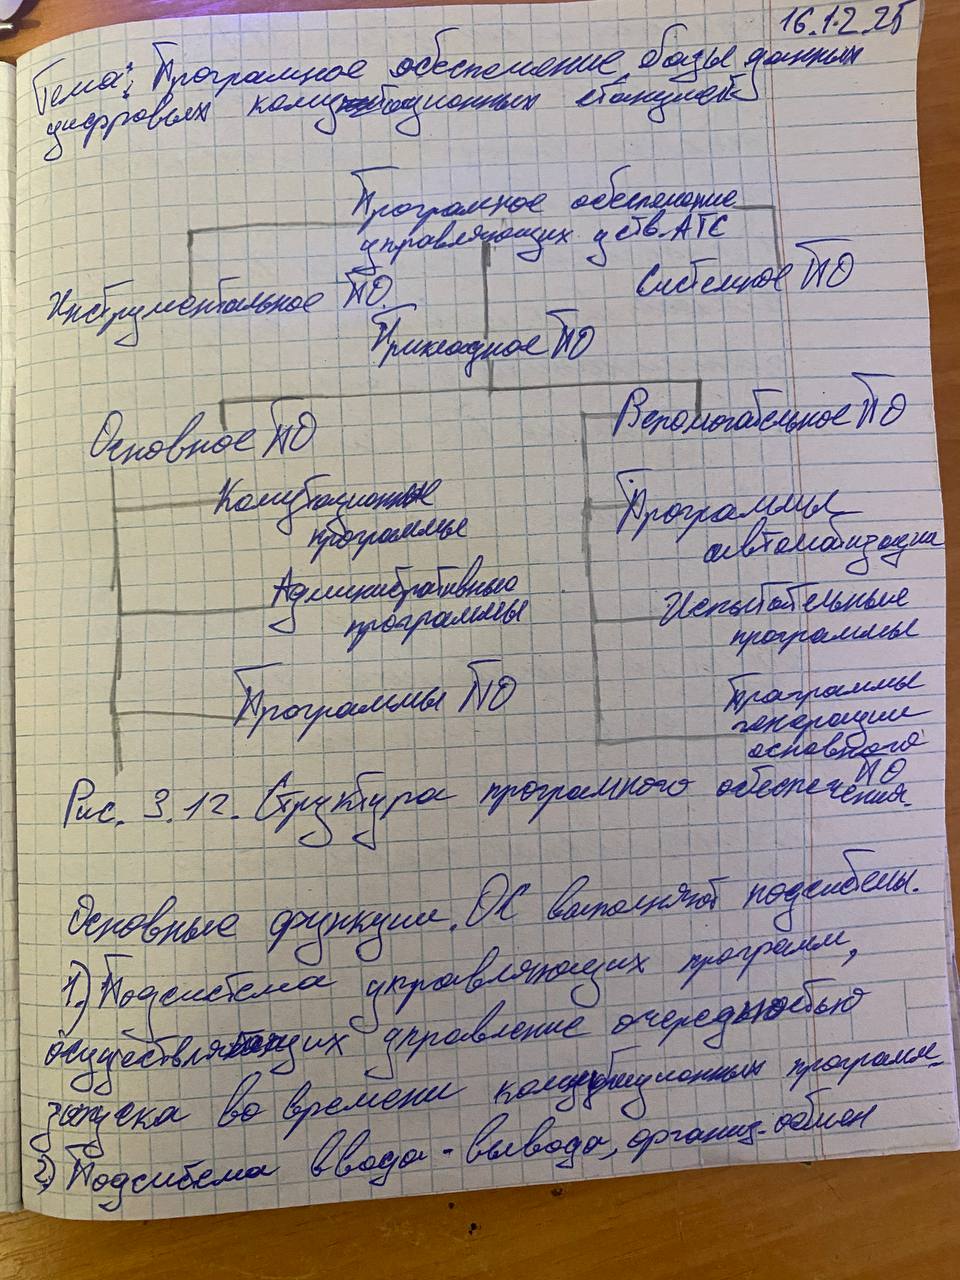 16.12.25
Тема: Програмное обеспечение, базы данных
цифровых комутационных станциях
Програмное обеспечение
управляющих уств. АТС
Инструментальное ПО
Системное ПО
Прикладное ПО
Основное ПО
Вспомогательное ПО
Комутационные
программы
Программы
автоматизации
Административные
программы
Испытательные
программы
Программы ПО
Программы
генерации
основного
ПО
Рис. 3.12. Структура програмного обеспечения.
Основные функции. ОС выполняют подсистемы.
1.) Подсистема управляющих программ,
осуществляющих управление очередностью
запуска во времени комутационных программ.
2) Подсистема ввода-вывода, организ. обмен